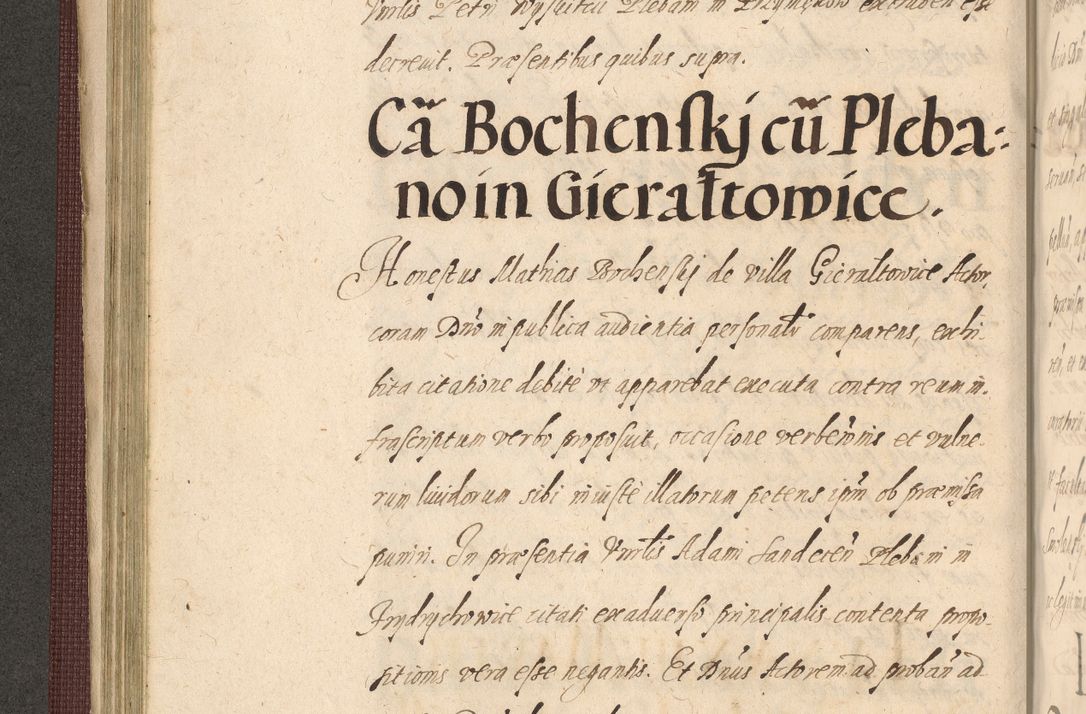 Vnrlis Petri Wysuitcii Plebani in Przymykow extraden esse
decreuit. Præsentibus quibus supra.
Cã Bochenskj cũ Pleba=
no in Gierałtowice.
Honestus Mathias Bochenskj de villa Gierałtowice Actor,
coram Dn̄o in publica audientia personalr̃ comparens, exhi-
bita citatione debitè vt apparebat executa contra reum in-
frascriptum verbo proposuit, occasione verberōnis et vulne-
rum liuidorum sibi iniustè illatorum petens ip̃m ob præmissa
puniri. In præsentia Vnrłis Adami Sandecen̄ Plebani in
Frydrychowice citati ex aduerso principalis contenta propo-
sitionis vera esse negantis. Et Dn̄us Actorem ad proban̄ ad